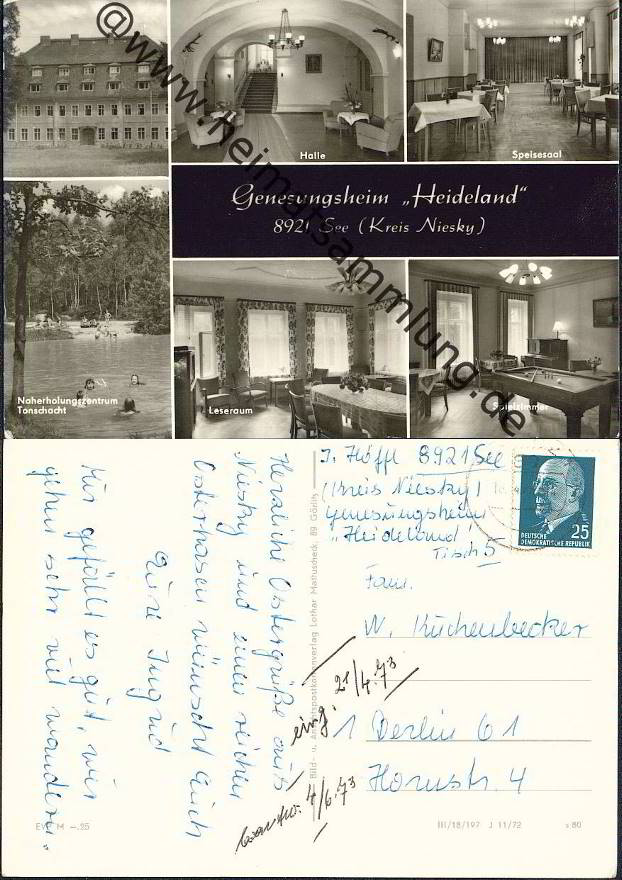 Halle
Speisesaal
Genesungsheim „Heideland“
8921 See (Kreis Niesky)
Naherholungszentrum
Tonschacht
Leseraum
Spielzimmer
@www.heimatsammlung.de
Herzliche Ostergrüße aus
Niesky und einen reichen
Osterhasen wünscht Euch
Eure Ingrid
Mir gefällt es gut, wir
gehen sehr viel wandern
Bild- u. Ansichtspostkartenverlag Lothar Mathuscheck, 89 Görlitz
8921 See
(Kreis Niesky)
Genesungsheim
„Heideland“
Tisch 5
DEUTSCHE
DEMOKRATISCHE REPUBLIK
25
Fam.
W. Küchenbecker
1 Berlin 61
Hornstr. 4
eing. 21/4.73
4/6.73
EVP M –.25
III/18/197 J 11/72 s 80